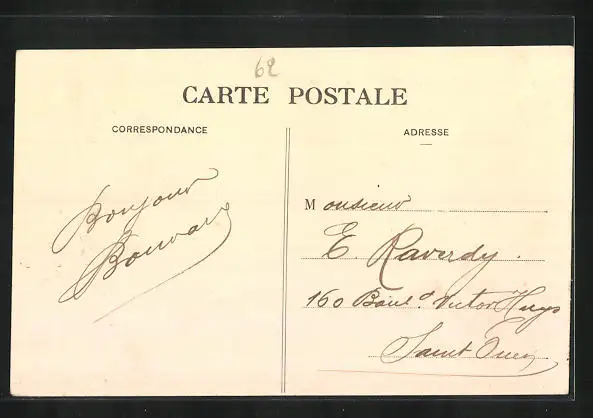 62
CARTE POSTALE
CORRESPONDANCE
Bonjour
Bouvard
ADRESSE
Monsieur
E. Raverdy.
160 Boul.d Victor Hugo
Saint Ouen